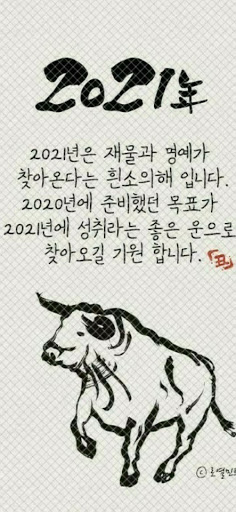 2021年
2021년은 재물과 명예가
찾아온다는 흰소의해 입니다.
2020년에 준비했던 목표가
2021년에 성취라는 좋은 운으로
찾아오길 기원 합니다.
丑